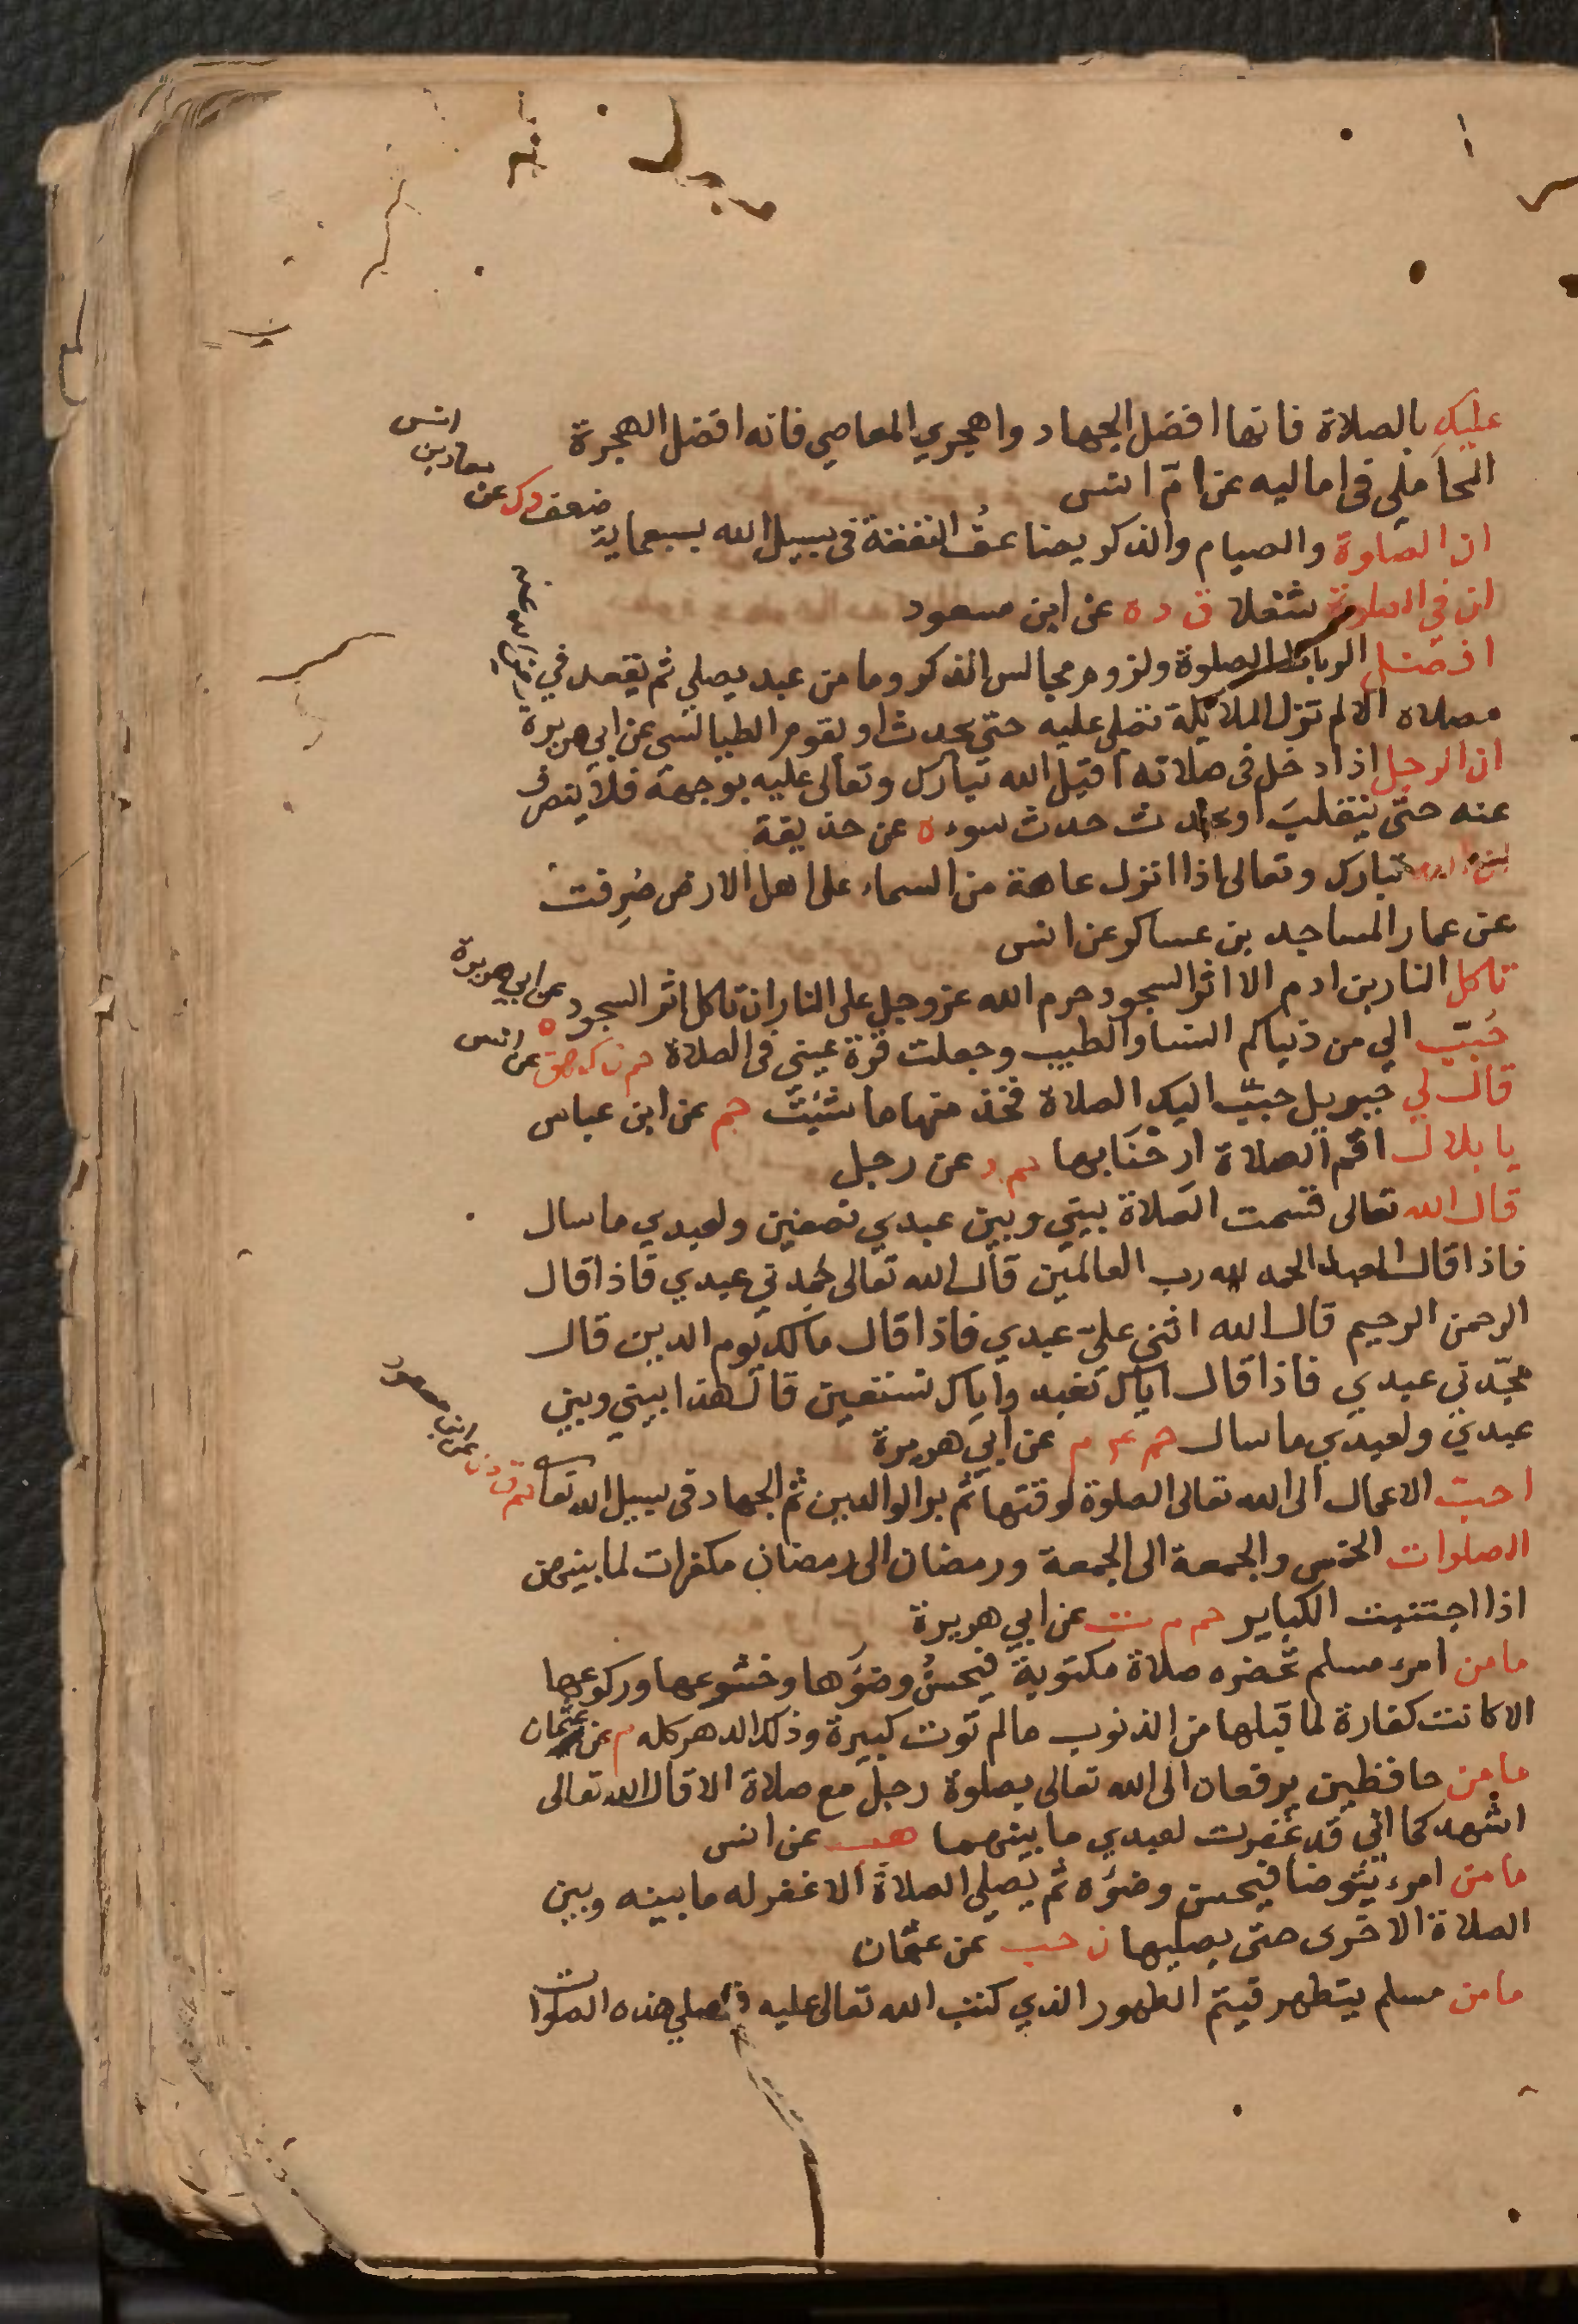 عليك بالصلاة فانها افضل الجهاد واهجري المعاصي فانه افضل الهجرة
المحاملي في اماليه عن ام انس
ان الصلوة والصيام والذكر يضاعف النفقة في سبيل الله بسبعماية ضعف د ك عن معاذ بن انس
ان في الصلوة شغلا ق د ه عن ابن مسعود
افضل الرباط الصلوة ولزوم مجالس الذكر وما من عبد يصلي ثم يقعد في
مصلاه الا لم تزل الملائكة تصلي عليه حتى يحدث او يقوم الطيالسي عن ابي هريرة
ان الرجل اذا دخل في صلاته اقبل الله تبارك وتعالى عليه بوجهه فلا ينصرف
عنه حتى ينقلب او يحدث حدث سوء ه عن حذيفة
تبارك وتعالى اذا انزل عاهة من السماء على اهل الارض صرفت
عن عمار المساجد بن عساكر عن انس
تاكل النار بن ادم الا اثر السجود حرم الله عز وجل على النار ان تاكل اثر السجود ه عن ابي هريرة
حبب الي من دنياكم النسا والطيب وجعلت قرة عيني في الصلاة حم ن ك هق عن انس
قال لي جبريل حبب اليك الصلاة فخذ منها ما شئت حم عن ابن عباس
يا بلال اقم الصلاة ارحنا بها حم د عن رجل
قال الله تعالى قسمت الصلاة بيني وبين عبدي نصفين ولعبدي ما سال
فاذا قال العبد الحمد لله رب العالمين قال الله تعالى حمدني عبدي فاذا قال
الرحمن الرحيم قال الله اثنى علي عبدي فاذا قال مالك يوم الدين قال
مجدني عبدي فاذا قال اياك نعبد واياك نستعين قال هذا بيني وبين
عبدي ولعبدي ما سال حم عم م عن ابي هريرة
احب الاعمال الى الله تعالى الصلوة لوقتها ثم بر الوالدين ثم الجهاد في سبيل الله تعا حم ق د ن عن ابن مسعود
الصلوات الخمس والجمعة الى الجمعة ورمضان الى رمضان مكفرات لما بينهن
اذا اجتنبت الكباير حم م ت عن ابي هريرة
ما من امرء مسلم تحضره صلاة مكتوبة فيحسن وضوءها وخشوعها وركوعها
الا كانت كفارة لما قبلها من الذنوب ما لم توت كبيرة وذلك الدهر كله م عن عثمان
ما من حافظين يرفعان الى الله تعالى بصلوة رجل مع صلاة الا قال الله تعالى
اشهدكما اني قد غفرت لعبدي ما بينهما هب عن انس
ما من امرء يتوضا فيحسن وضوءه ثم يصلي الصلاة الا غفر له ما بينه وبين
الصلاة الاخرى حتى يصليها ن حب عن عثمان
ما من مسلم يتطهر فيتم الطهور الذي كتب الله تعالى عليه فيصلي هذه الصلوات